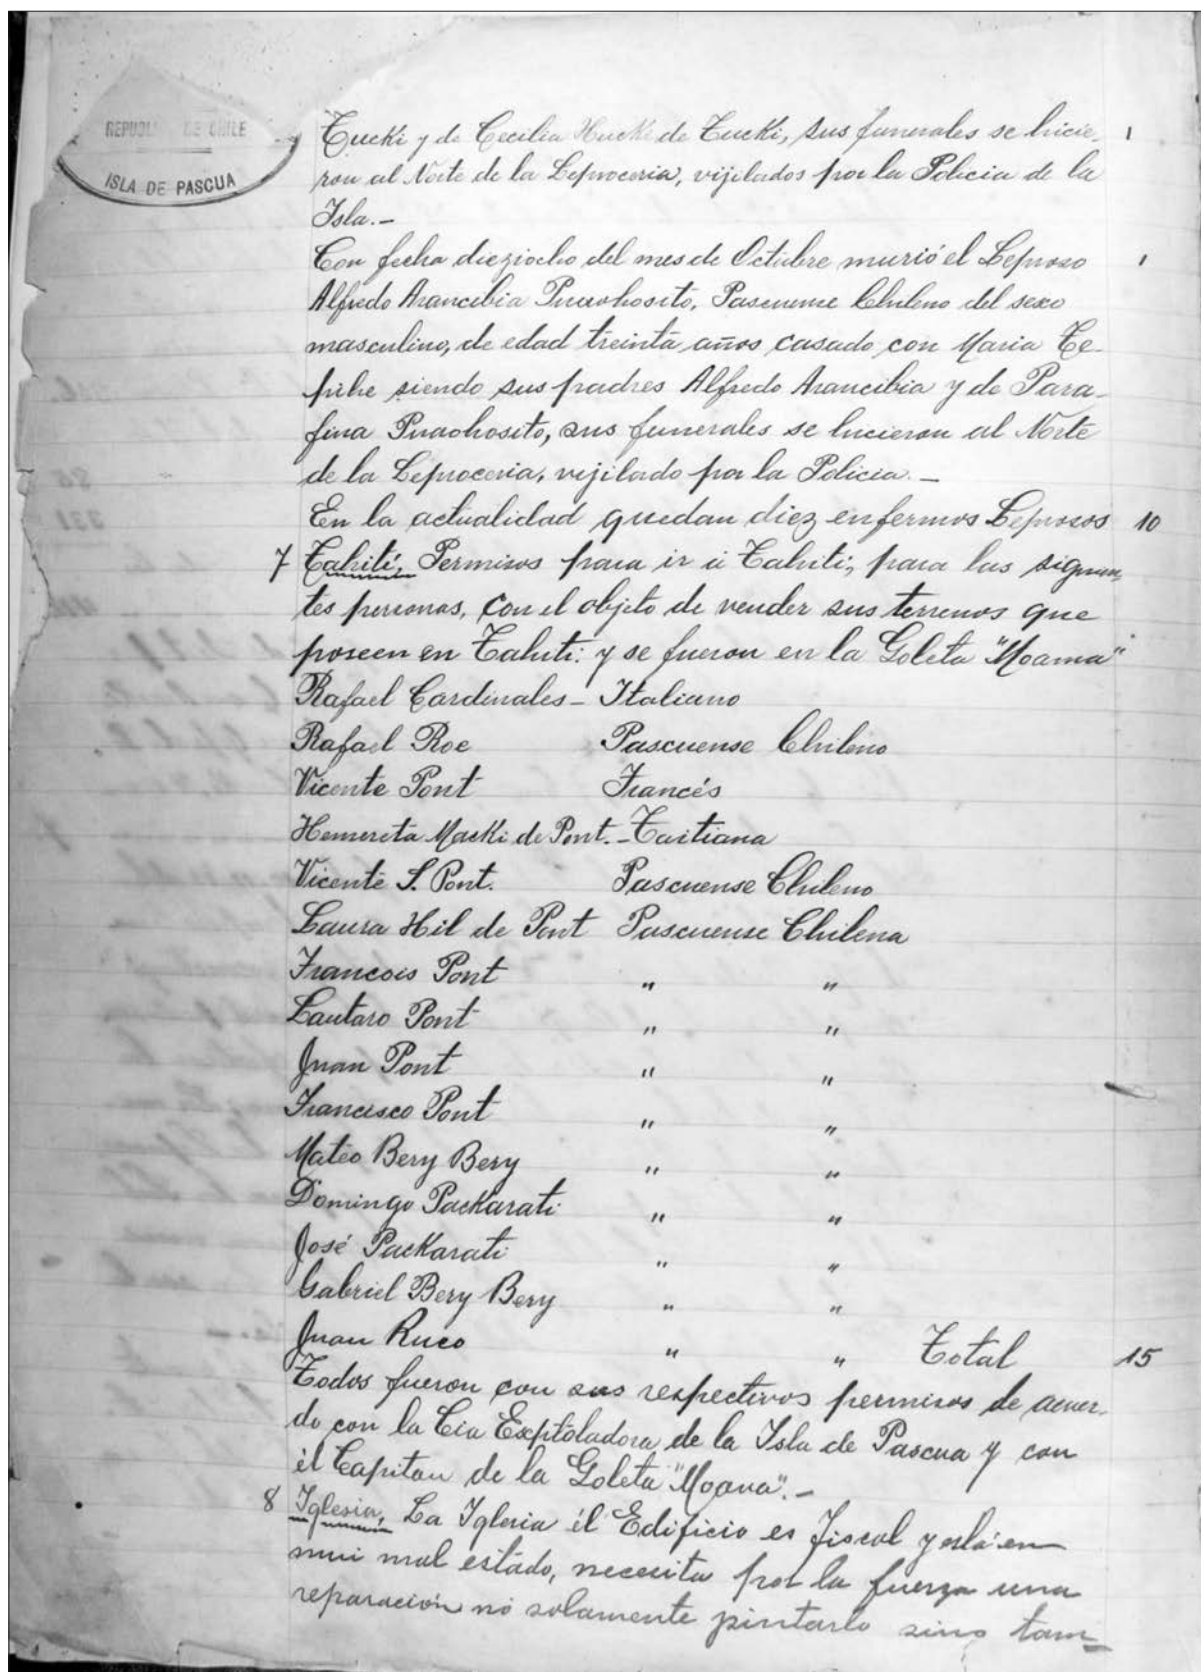 REPUBLICA DE CHILE
ISLA DE PASCUA
Tucki y de Cecilia Hucki de Tucki, sus funerales se hicie- 1
ron al Norte de la Leproceria, vijilados por la Policia de la
Isla.-
Con fecha dieziocho del mes de Octubre murió el Leproso 1
Alfredo Arancibia Puaohosito, Pascuense Chileno del sexo
masculino, de edad treinta años casado con Maria Te-
pihe siendo sus padres Alfredo Arancibia y de Para-
fina Puaohosito, sus funerales se hicieron al Norte
de la Leproceria, vijilado por la Policia.-
En la actualidad quedan diez enfermos Leprosos 10
7 Tahití, Permisos para ir á Tahiti, para las siguien-
tes personas, con el objeto de vender sus terrenos que
poseen en Tahiti: y se fueron en la Goleta "Moana"
Rafael Cardinales - Italiano
Rafael Roe Pascuense Chileno
Vicente Pont Francés
Hemereta Macki de Pont.- Taitiana
Vicente S. Pont. Pascuense Chileno
Laura Hil de Pont Pascuense Chilena
Francois Pont " "
Lautaro Pont " "
Juan Pont " "
Francisco Pont " "
Mateo Bery Bery " "
Domingo Packarati " "
José Packarati " "
Gabriel Bery Bery " "
Juan Ruco " " Total 15
Todos fueron con sus respectivos permisos de acuer-
do con la Cia Exptoladora de la Isla de Pascua y con
él Capitan de la Goleta "Moana".-
8 Iglesia, La Iglesia él Edificio es fiscal y está en
mui mal estado, necesita por la fuerza una
reparación nó solamente pintarlo sino tam-